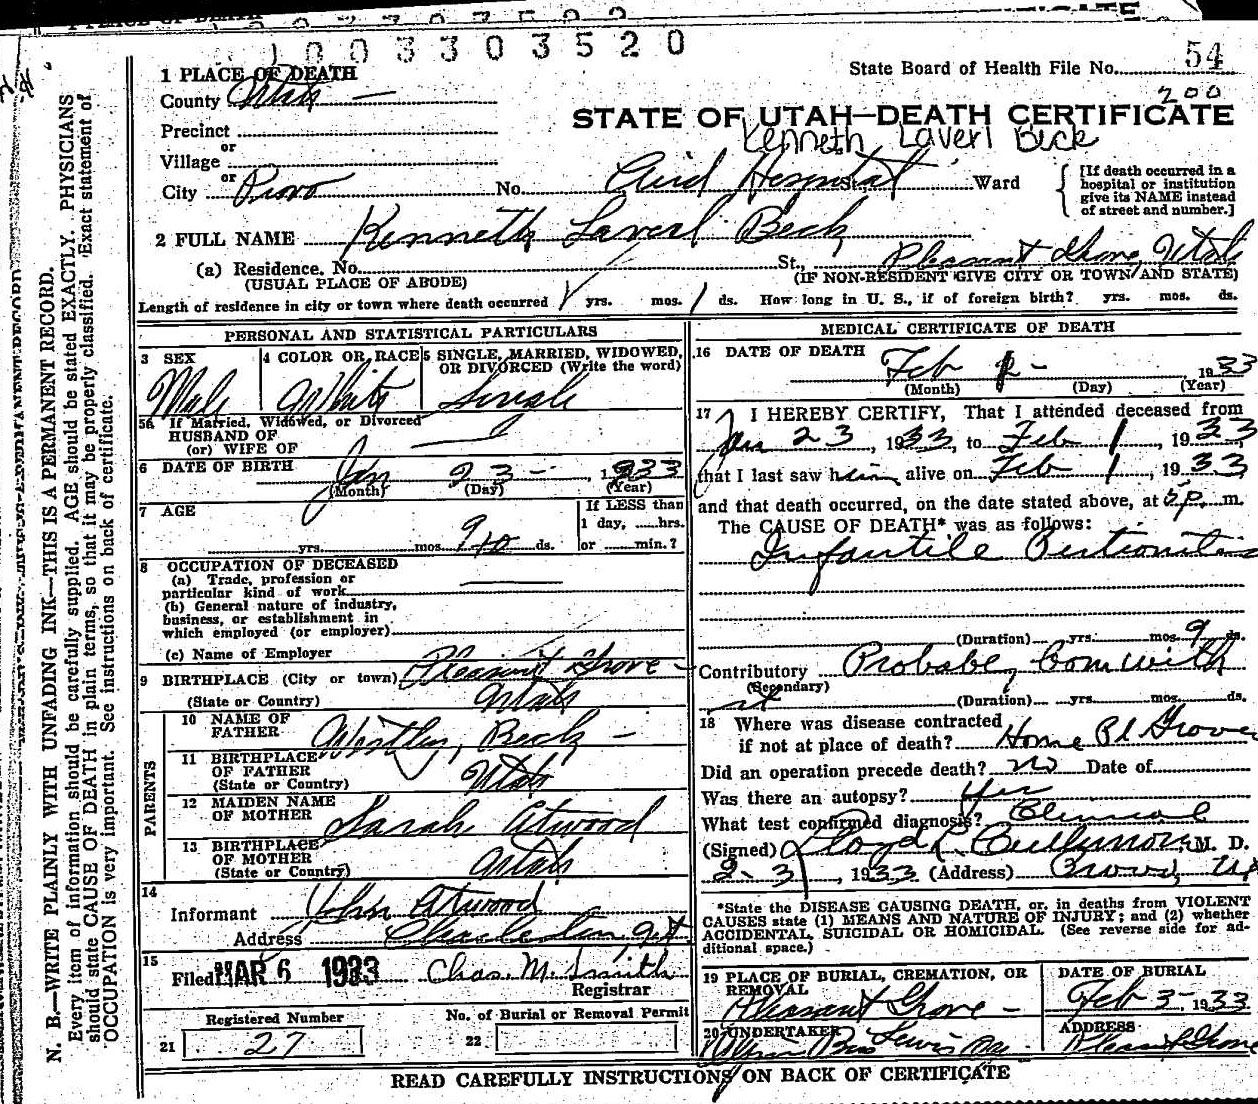 1003303520
State Board of Health File No. 54
200
STATE OF UTAH—DEATH CERTIFICATE
Kenneth Laverl Beck
1 PLACE OF DEATH
County Utah
Precinct
or
Village
or
City Provo No. Aird Hospital St. Ward
[If death occurred in a
hospital or institution
give its NAME instead
of street and number.]
2 FULL NAME Kenneth Laverl Beck
(a) Residence. No. St., Pleasant Grove, Utah
(USUAL PLACE OF ABODE) (IF NON-RESIDENT GIVE CITY OR TOWN AND STATE)
Length of residence in city or town where death occurred yrs. mos. ds. How long in U. S., if of foreign birth? yrs. mos. ds.
PERSONAL AND STATISTICAL PARTICULARS
3 SEX Male
4 COLOR OR RACE White
5 SINGLE, MARRIED, WIDOWED,
OR DIVORCED (Write the word)
Single
5a If Married, Widowed, or Divorced
HUSBAND OF
(or) WIFE OF
6 DATE OF BIRTH Jan 23 1933
(Month) (Day) (Year)
7 AGE yrs. mos. ds.
If LESS than
1 day, ......hrs.
or ......min.?
8 OCCUPATION OF DECEASED
(a) Trade, profession or
particular kind of work
(b) General nature of industry,
business, or establishment in
which employed (or employer)
(c) Name of Employer
9 BIRTHPLACE (City or town) Pleasant Grove
(State or Country) Utah
PARENTS
10 NAME OF
FATHER Beck
11 BIRTHPLACE
OF FATHER
(State or Country) Utah
12 MAIDEN NAME
OF MOTHER Sarah Atwood
13 BIRTHPLACE
OF MOTHER
(State or Country) Utah
14
Informant Atwood
Address Charleston Ut
15
Filed MAR 6 1933 Chas. M. Smith
Registrar
Registered Number
21 27
No. of Burial or Removal Permit
22
MEDICAL CERTIFICATE OF DEATH
16 DATE OF DEATH
Feb 1933
(Month) (Day) (Year)
17 I HEREBY CERTIFY, That I attended deceased from
Jan 23, 1933, to Feb 1, 1933
that I last saw him alive on Feb 1, 1933
and that death occurred, on the date stated above, at 5 p. m.
The CAUSE OF DEATH* was as follows:
Infantile Peritonitis
(Duration) yrs. mos. 9 ds.
Contributory Probably born with
(Secondary)
it (Duration) yrs. mos. ds.
18 Where was disease contracted
if not at place of death? Home Pl Grove
Did an operation precede death? no Date of
Was there an autopsy? yes
What test confirmed diagnosis? Clinical
(Signed) Lloyd L. Cullimore M. D.
2-3, 1933 (Address) Provo, Ut
*State the DISEASE CAUSING DEATH, or, in deaths from VIOLENT
CAUSES state (1) MEANS AND NATURE OF INJURY; and (2) whether
ACCIDENTAL, SUICIDAL OR HOMICIDAL. (See reverse side for ad-
ditional space.)
19 PLACE OF BURIAL, CREMATION, OR
REMOVAL
Pleasant Grove
DATE OF BURIAL
Feb 3 1933
20 UNDERTAKER
ADDRESS
Pleasant Grove
READ CAREFULLY INSTRUCTIONS ON BACK OF CERTIFICATE
N. B.—WRITE PLAINLY WITH UNFADING INK—THIS IS A PERMANENT RECORD.
Every item of information should be carefully supplied. AGE should be stated EXACTLY. PHYSICIANS
should state CAUSE OF DEATH in plain terms, so that it may be properly classified. Exact statement of
OCCUPATION is very important. See instructions on back of certificate.